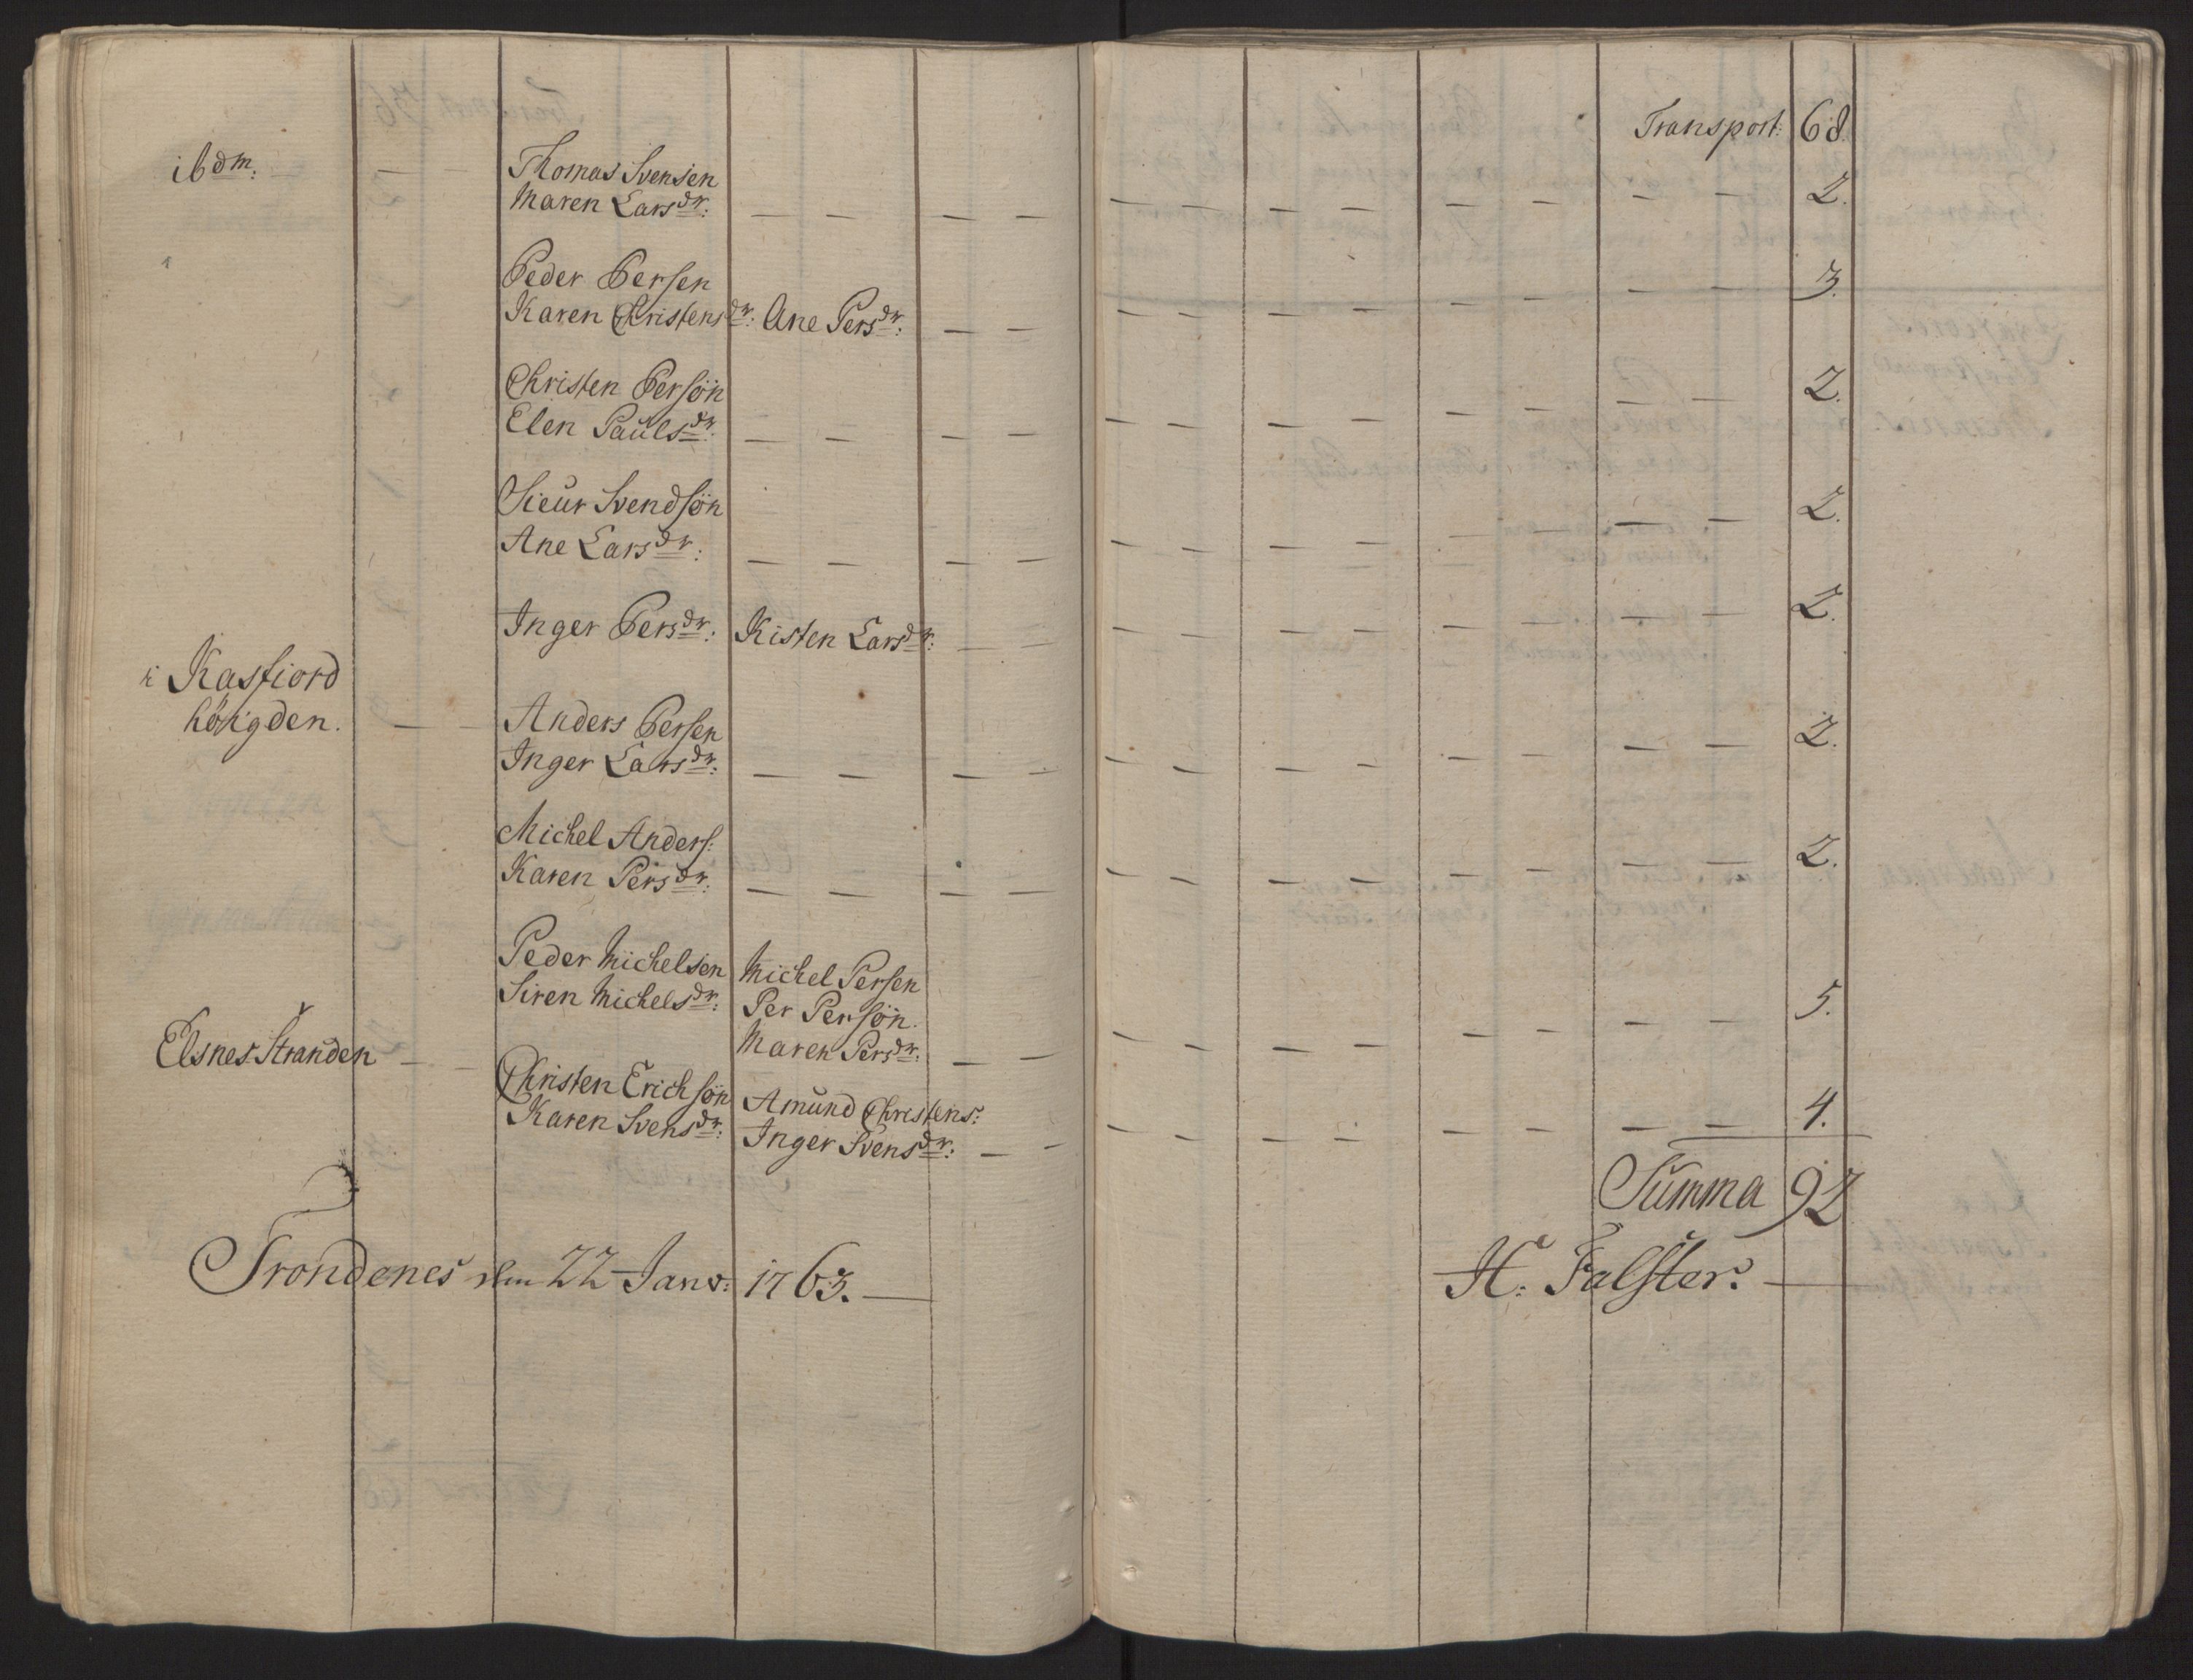 Transport: 68.
ibdm: — Thomas Svensen
Maren Larsdr: — — — — — — — — — — — — 2.
Peder Persen
Karen Christensdr: Ane Persdr: — — — — — — — — — — 3.
Christen Persön
Elen Paulsdr: — — — — — — — — — — — — 2.
Sieur Svendsön
Ane Larsdr: — — — — — — — — — — — — 2.
Inger Persdr: Kisten Larsdr: — — — — — — — — — — 2.
i Kasfiord
höÿgden. — Anders Persen
Inger Larsdr: — — — — — — — — — — — — 2.
Michel Anders:
Karen Persdr: — — — — — — — — — — — — 2.
Peder Michelsen Michel Persen
Siren Michelsdr: Per Persön.
Maren Persdr: — — — — — — — — — — 5.
Elsnes Stranden —
Christen Erichsön Amund Christens:
Karen Svensdr: Inger Svensdr: — — — — — — — — — — 4.
Summa 92
Trondenes den 22 Janv: 1763. —
H: Falster. —